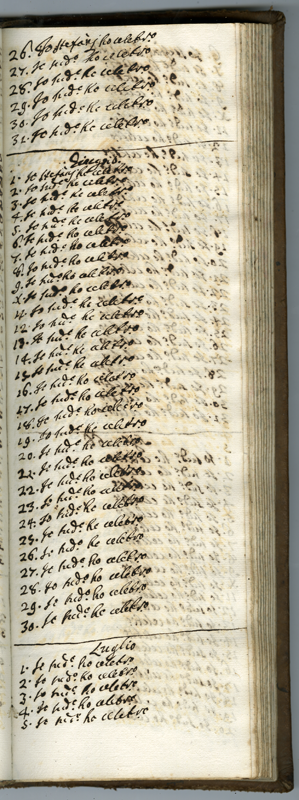 26. Io Stefani ho celebro
27. Io sud.º ho celebro
28. Io sud.º ho celebro
29. Io sud.º ho celebro
30. Io sud.º ho celebro
31. Io sud.º ho celebro
Giugno
1. Io Stefani ho celebro
2. Io sud.º ho celebro
3. Io sud.º ho celebro
4. Io sud.º ho celebro
5. Io sud.º ho celebro
6. Io sud.º ho celebro
7. Io sud.º ho celebro
8. Io sud.º ho celebro
9. Io sud.º ho celebro
Io sud.º ho celebro
11. Io sud.º ho celebro
12. Io sud.º ho celebro
13. Io sud.º ho celebro
14. Io sud.º ho celebro
15. Io sud.º ho celebro
16. Io sud.º ho celebro
17. Io sud.º ho celebro
18. Io sud.º ho celebro
19. Io sud.º ho celebro
20. Io sud.º ho celebro
21. Io sud.º ho celebro
22. Io sud.º ho celebro
23. Io sud.º ho celebro
24. Io sud.º ho celebro
25. Io sud.º ho celebro
26. Io sud.º ho celebro
27. Io sud.º ho celebro
28. Io sud.º ho celebro
29. Io sud.º ho celebro
30. Io sud.º ho celebro
Luglio
1. Io sud.º ho celebro
2. Io sud.º ho celebro
3. Io sud.º ho celebro
4. Io sud.º ho celebro
5. Io sud.º ho celebro